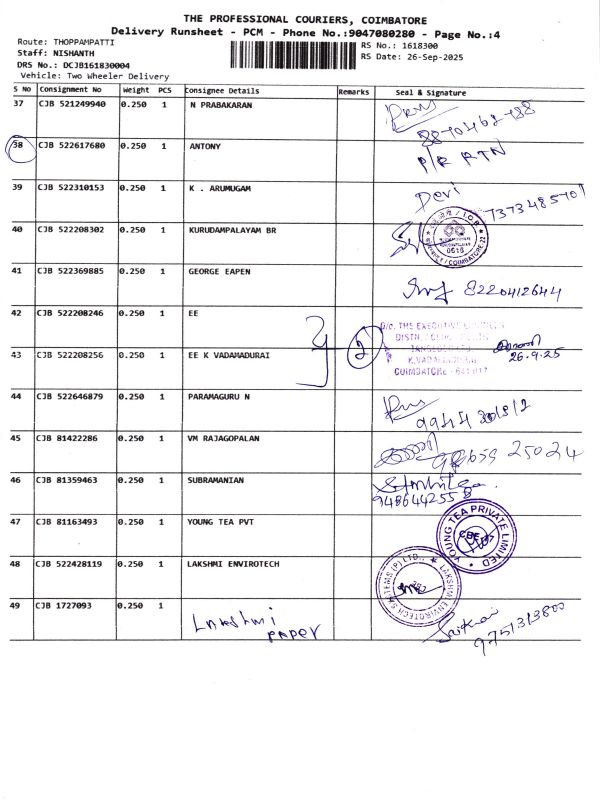 THE PROFESSIONAL COURIERS, COIMBATORE
Delivery Runsheet - PCM - Phone No.:9047080280 - Page No.:4
Route: THOPPAMPATTI
RS No.: 1618300
Staff: NISHANTH
RS Date: 26-Sep-2025
DRS No.: DCJB161830004
Vehicle: Two Wheeler Delivery
S No Consignment No Weight PCS Consignee Details Remarks Seal & Signature
37 CJB 521249940 0.250 1 N PRABAKARAN
38 CJB 522617680 0.250 1 ANTONY P/R RTN
39 CJB 522310153 0.250 1 K . ARUMUGAM Devi 7373485701
40 CJB 522208302 0.250 1 KURUDAMPALAYAM BR
41 CJB 522369885 0.250 1 GEORGE EAPEN 8220412644
42 CJB 522208246 0.250 1 EE
2
O/o. THE EXECUTIVE
43 CJB 522208256 0.250 1 EE K VADAMADURAI 26.9.25
COIMBATORE - 641 017
44 CJB 522646879 0.250 1 PARAMAGURU N
45 CJB 81422286 0.250 1 VM RAJAGOPALAN
46 CJB 81359463 0.250 1 SUBRAMANIAN 9486442558
47 CJB 81163493 0.250 1 YOUNG TEA PVT YOUNG TEA PRIVATE LIMITED CBE
48 CJB 522428119 0.250 1 LAKSHMI ENVIROTECH LAKSHMI ENVIROTECH SYSTEMS (P) LTD.,
49 CJB 1727093 0.250 1 Lakshmi PAPER 9751313800